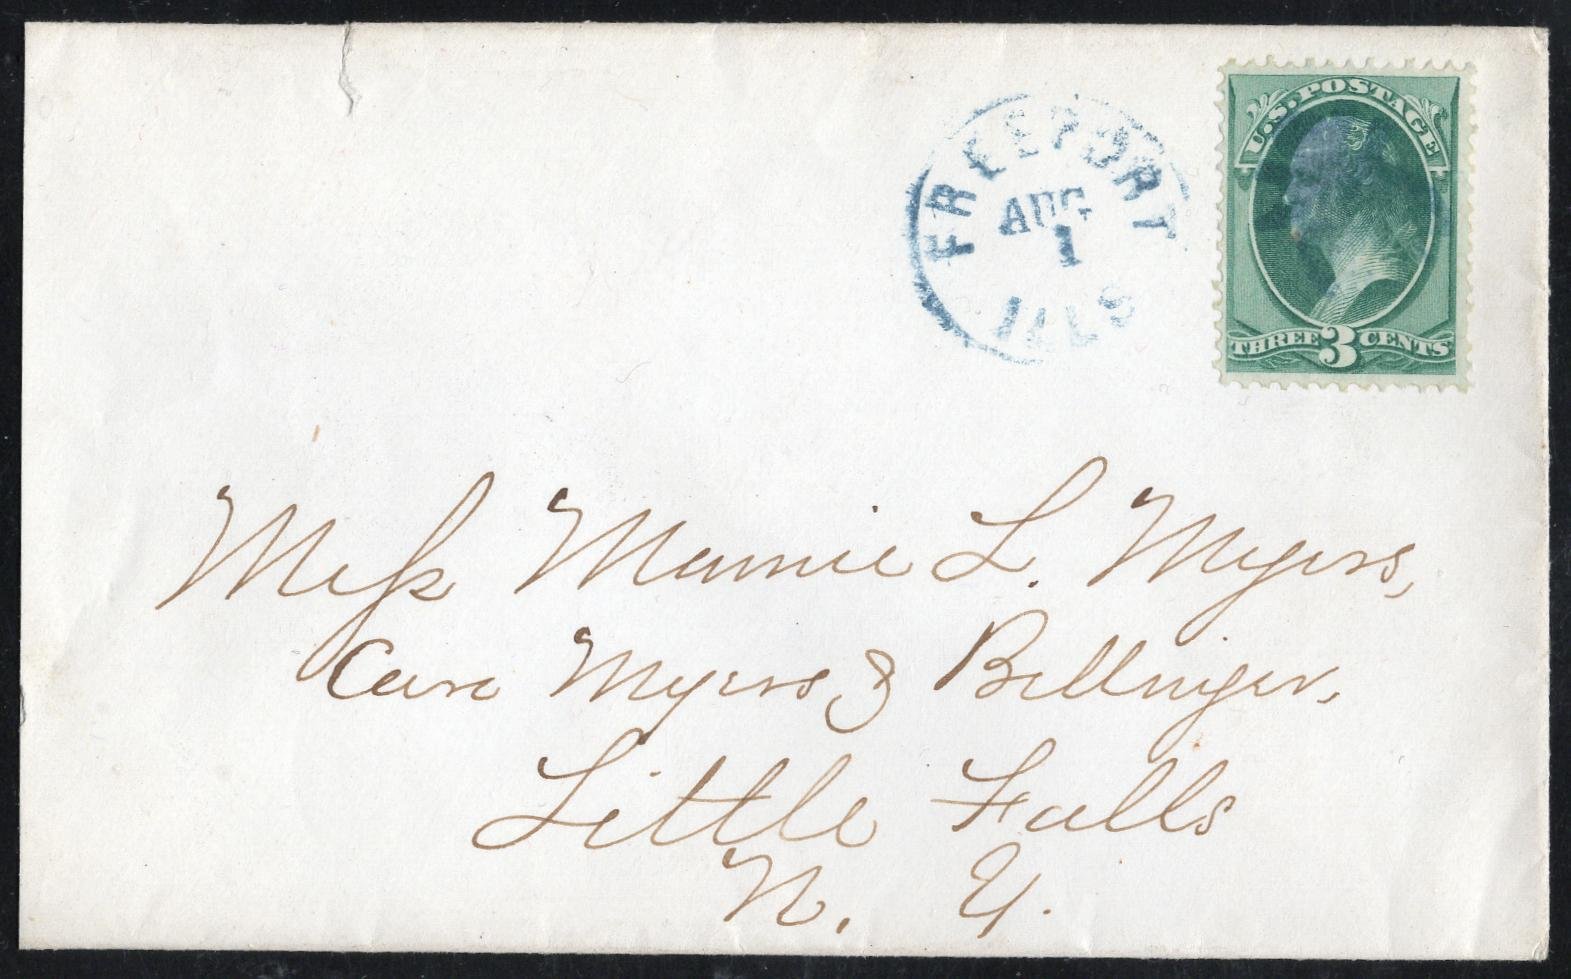 FREEPORT
AUG
1
ILLS
U.S. POSTAGE
THREE 3 CENTS
Miss Mamie L. Myers,
Care Myers & Bellinger,
Little Falls
N. Y.